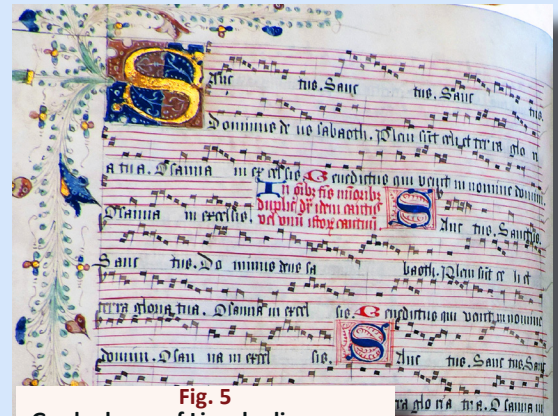 Sanc tus. Sanc tus. Sanc tus.
Dominus de us sabaoth. Pleni sūt celi et ter ra glo ri
a tua. Osanna in ex celsis Benedictus qui venit in nomine domini.
Osanna in excelsis.
Sanc tus. Sanctus.
Sanc tus. Do minus deus sa baoth. Pleni sūt ce li et
terra gloria tua. Osanna in excel sis. Benedictus qui venit in nomine
domini. Osan na in excel sis. Sanc tus. Sanc tus. Sanc
ra glo ri a tu a. Osanna in
Fig. 5